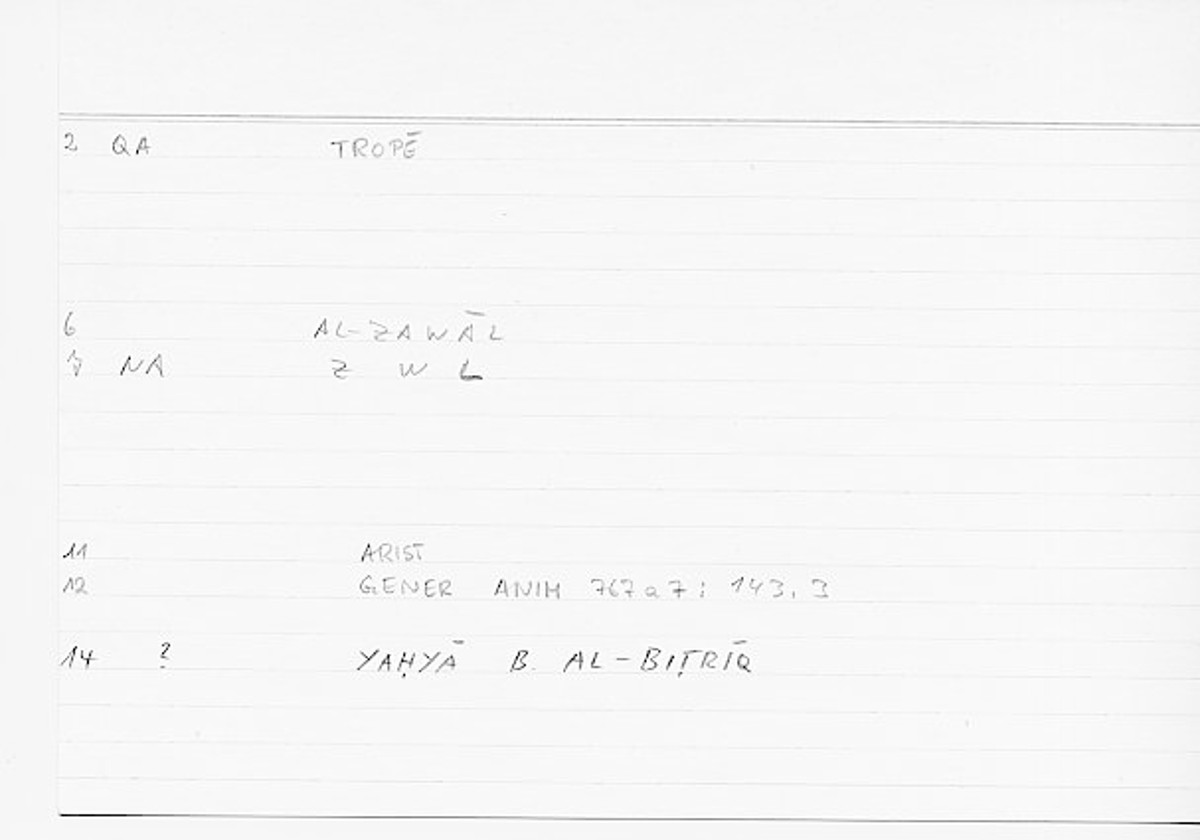 2 QA TROPĒ
6 AL-ZAWĀL
NA Z W L
11 ARIST
12 GENER ANIM 767a7; 143.3
14 ? YAḤYĀ B. AL-BIṬRĪQ